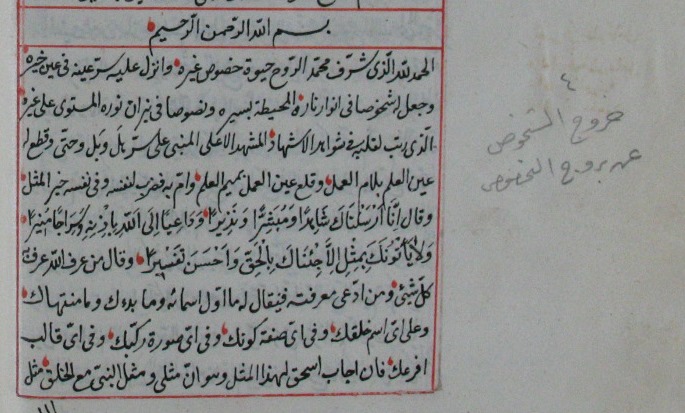 بسم الله الرحمن الرحيم
الحمد لله الذى شرف محمد الروح حيوة خصوص غيره وانزل عليه سر عينه فى عين خيره
وجعل شخوصا فى انوار ناره المحيطة بسيره ونصوصا فى نيران نوره المستوى على غيره
الذى رتب لقلبه فى شواهد الاشهاد المشهد الاعلى المبنى على ستر بل وبل وحتى وقطع له
عين العلم بلام العمل وقلع عين العمل بميم العلم وامر به فضرب لنفسه وفى نفسه خير المثل
وقال اِنَّا اَرْسَلْنَاكَ شَاهِدًا وَمُبَشِّرًا وَنَذِيرًا وَدَاعِيًا اِلَى اللّٰهِ بِاِذْنِهِ وَسِرَاجًا مُنِيرًا
وَلَا يَأْتُونَكَ بِمَثَلٍ اِلَّا جِئْنَاكَ بِالْحَقِّ وَاَحْسَنَ تَفْسِيرًا وقال من عرف الله عرف
كل شيئ ومن ادعى معرفته فيقال له ما اول اسمائه وما بدءك وما منتهاك
وعلى اى اسم خلقك وفى اى صنعة كونك وفى اى صورة ركبك وفى اى قالب
افرغك فان اجاب اسحق لهذا المثل وهو ان مثلى ومثل النبى مع الخلق مثل
٤
خروج الشخوص
عن بروج الخصوص